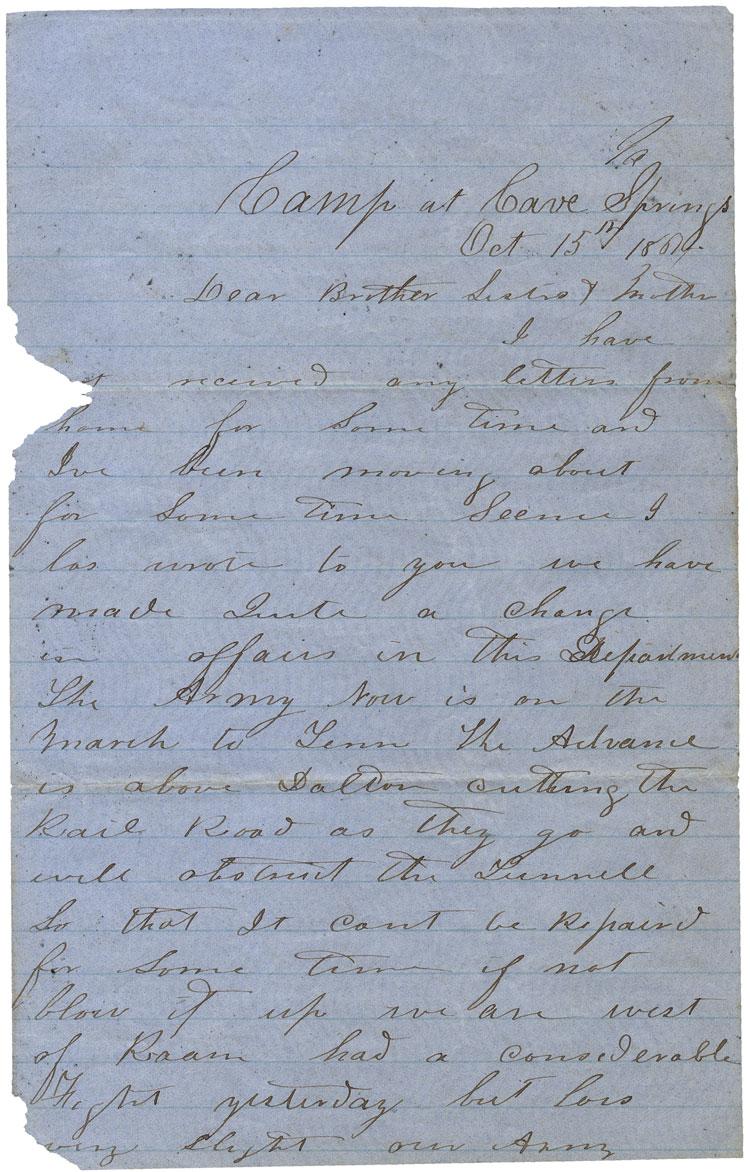 Ga
Camp at Cave Springs
Oct 15th 1864
Dear Brother Sisters & Mother
I have
received any letters from
home for some time and
Ive been moving about
for some time Seence I
las wrote to you we have
made Quite a change
in affairs in this Department
The Army Now is on the
March to Tenn The Advance
is above Dalton cutting the
Rail Road as they go and
will obstruct the Tunnell
So that It cant be Repaird
for some time if not
blow it up we are west
of Raam had a considerable
Fight yesterday but loss
very slight our Army